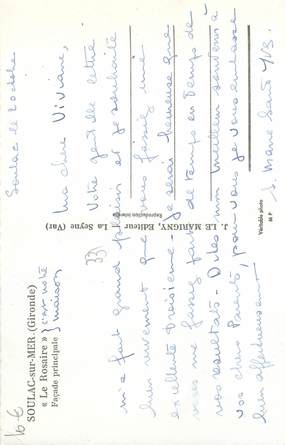 Soulac le 10 Octobre
Ma chère Viviane,
Votre gentille lettre
m'a fait grand plaisir et je souhaite
bien vivement que vous fassiez une
excellente troisième. Je serai heureuse que
vous me fassiez part de temps en temps de
vos résultats. Dites mon meilleur souvenir à
vos chers Parents, pour vous je vous embrasse
bien affectueusement
S. Marie
16-6
SOULAC-sur-MER (Gironde)
« Le Rosaire » } c'est notre
Façade principale } maison
33
J. LE MARIGNY, Editeur La Seyne (Var)
Reproduction interdite
Véritable photo